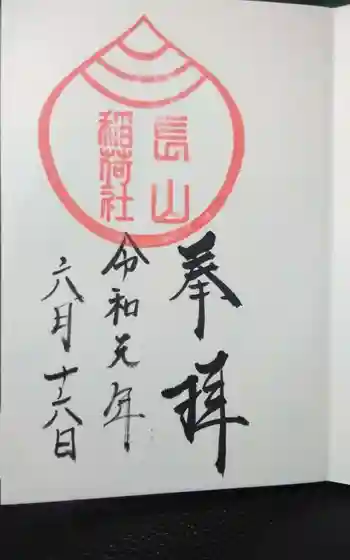 奉拝
長山
稲荷社
令和元年
六月十六日